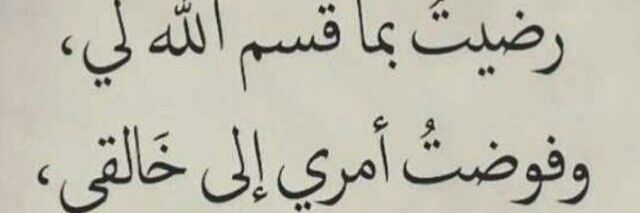 رضيتَ بما قسم الله لي،
وفوضتُ أمري إلى خَالقي،